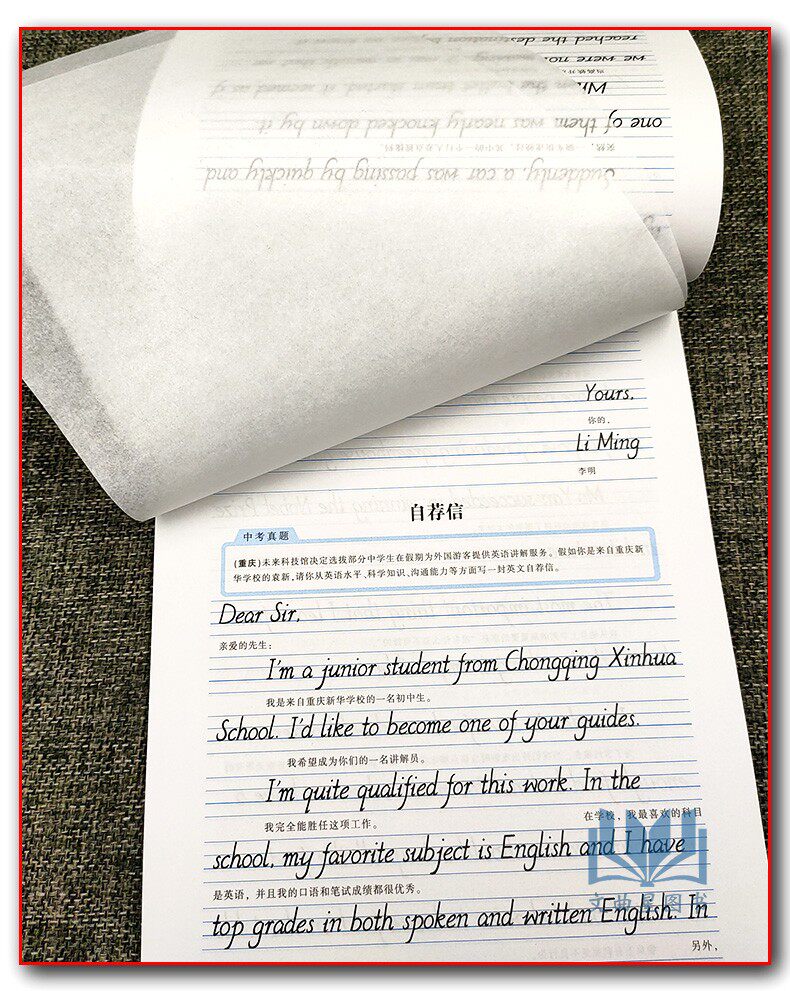 reached the destination by
we were no
Wh
one of them was nearly knocked down by it
Suddenly, a car was passing by quickly and
Yours,
你的，
Li Ming
李明
自荐信
中考真题
(重庆)未来科技馆决定选拔部分中学生在假期为外国游客提供英语讲解服务。假如你是来自重庆新
华学校的袁新,请你从英语水平、科学知识、沟通能力等方面写一封英文自荐信。
Dear Sir,
亲爱的先生：
I'm a junior student from Chongqing Xinhua
我是来自重庆新华学校的一名初中生。
School. I'd like to become one of your guides.
我希望成为你们的一名讲解员。
I'm quite qualified for this work. In the
我完全能胜任这项工作。 在学校，我最喜欢的科目
school, my favorite subject is English and I have
是英语，并且我的口语和笔试成绩都很优秀。
top grades in both spoken and written English. In
另外，
文曲星图书